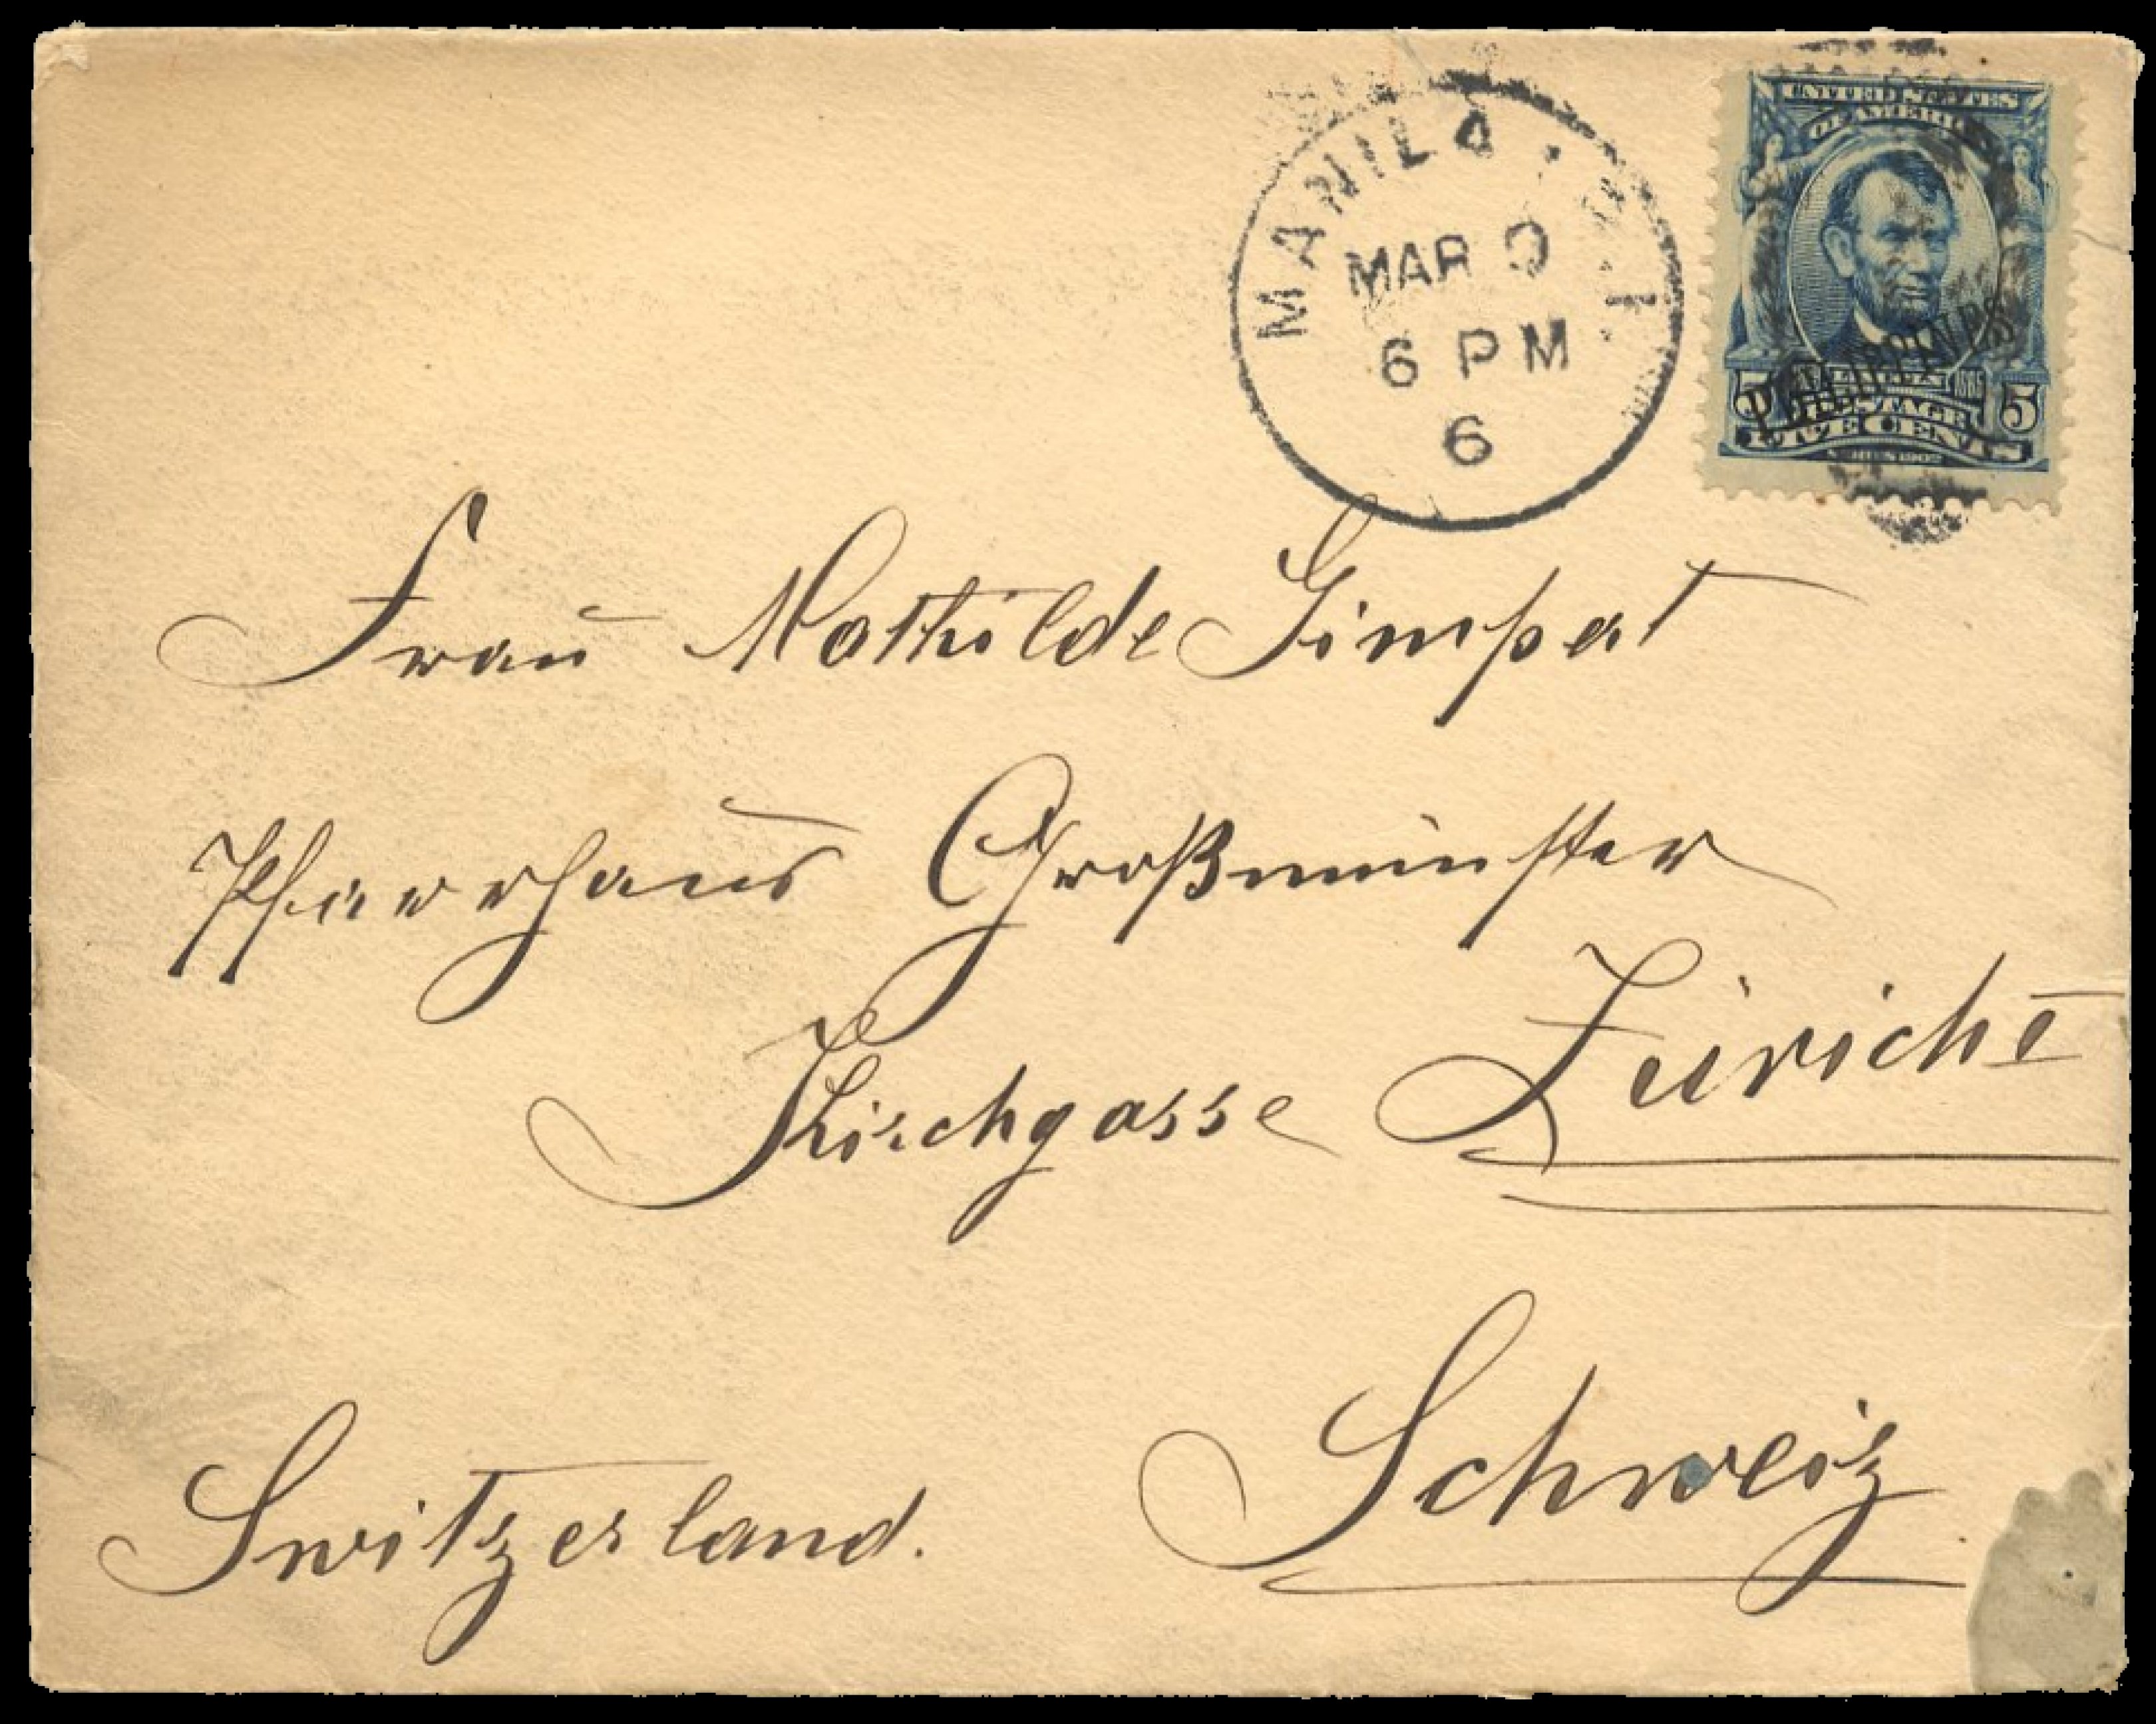 MANILA, P.I.
MAR
6 PM
6
UNITED STATES
OF AMERICA
PHILIPPINES
LINCOLN
POSTAGE
5 5
FIVE CENTS
SERIES 1902
Frau Mathilde Gimpert
Pfarrhaus Großmünster
Kirchgasse Zürich I
Switzerland. Schweiz